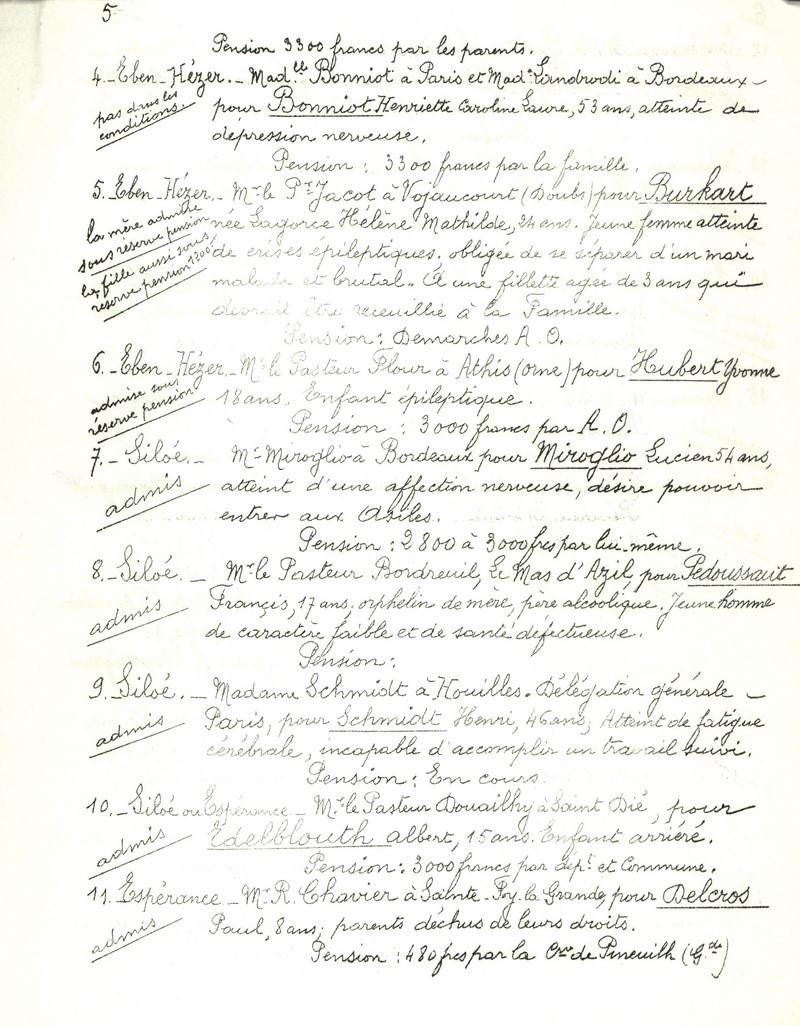 5.
Pension 3300 francs par les parents.
4._Eben-Hézer._ Mad.lle Bonniot à Paris et Mad. Landrodi à Bordeaux_
pas dans les
conditions.
pour Bonniot Henriette Caroline Laure, 53 ans, atteinte de
dépression nerveuse.
Pension : 3300 francs par la famille.
5._Eben_Hézer._ Mr le Pr Jacot à Vojaucourt (Doubs) pour Burkart
la mère admise
sous réserve pension
la fille aussi sous
réserve pension 1200
née Lagorce Hélène Mathilde, 24 ans. Jeune femme atteinte
de crises épileptiques. obligée de se séparer d'un mari
malade et brutal.. A une fillette agée de 3 ans qui
devrait être receuillie à la Famille.
Pension : Demarches A.O.
6._Eben-Hézer._ Mr le Pasteur Flour à Athis (orne) pour Hubert Yvonne
admise sous
réserve pension
18 ans. Enfant épileptique.
Pension : 3000 francs par A.O.
7._Siloé._ Mr Miroglio à Bordeaux pour Miroglio Lucien 54 ans,
admis
atteint d'une affection nerveuse, désire pouvoir
entrer aux Asiles.
Pension : 2800 à 3000 frcs par lui-même.
8._Siloé._ Mr le Pasteur Bordreuil, Le Mas d'Azil, pour Pedoussaut
admis
François, 17 ans. orphelin de mère, père alcoolique. Jeune homme
de caractère faible et de santé défectueuse.
Pension :
9._Siloé._ Madame Schmidt à Houilles. Délégation générale_
admis
Paris, pour Schmidt Henri, 46 ans; Atteint de fatigue
cérébrale, incapable d'accomplir un travail suivi.
Pension : En cours
10._Siloé ou Espérance_ Mr le Pasteur Douailhy à Saint Dié, pour
admis
Edelblouth albert, 15 ans. Enfant arriéré.
Pension : 3000 francs par dépt et Commune.
11. Espérance_ Mr R. Chavier à Sainte-Foy. la Grande, pour Delcros
admis
Paul, 8 ans; parents déchus de leurs droits.
Pension : 480 frcs par la Cne de Pineuilh (G.de)